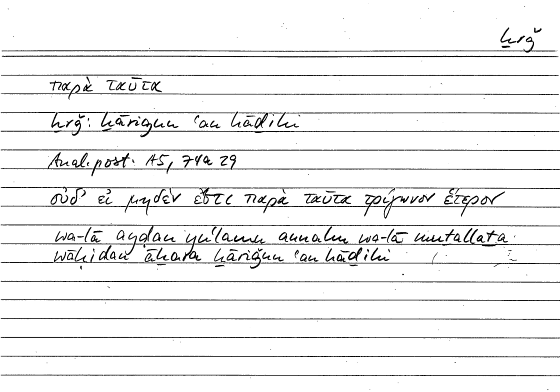 ḫrǧ
παρὰ ταῦτα
ḫrǧ: ḫāriǧun ʿan hāḏihi
Anal. post. A5, 74a 29
οὐδ' εἰ μηδέν ἐστι παρὰ ταῦτα τρίγωνον ἕτερον
wa-lā ayḍan yuʿlamu annahu wa-lā muṯallaṯa
wāḥidan āḫara ḫāriǧun ʿan hāḏihi